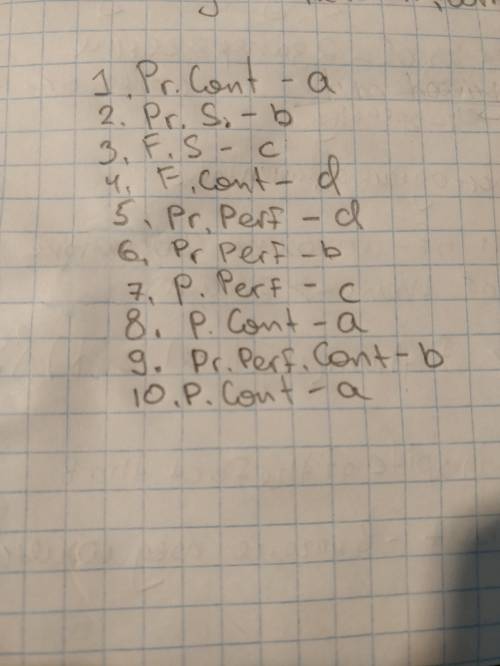 1. Pr. Cont - a
2. Pr. S. - b
3. F. S - c
4. F. Cont - d
5. Pr. Perf - d
6. Pr Perf - b
7. P. Perf - c
8. P. Cont - a
9. Pr. Perf. Cont - b
10. P. Cont - a